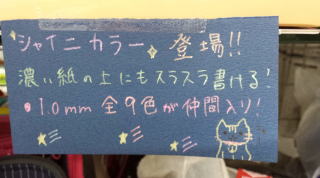 シャイニカラー 登場!!
濃い紙の上にもスラスラ書ける!
1.0mm 全9色が仲間入り!